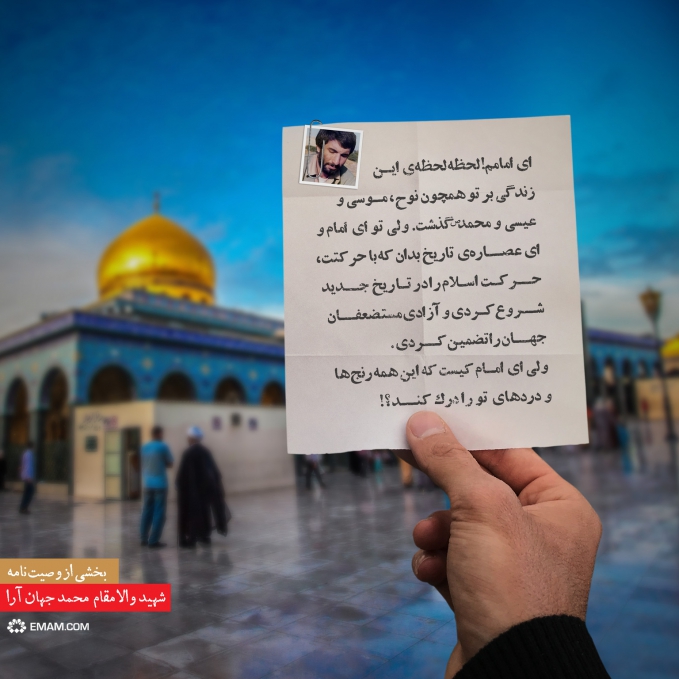 ای امامم! لحظه لحظه‌ی این
زندگی بر تو همچون نوح، موسی و
عیسی و محمد(ص) گذشت. ولی تو ای امام و
ای عصاره‌ی تاریخ بدان که با حرکتت،
حرکت اسلام را در تاریخ جدید
شروع کردی و آزادی مستضعفان
جهان را تضمین کردی.
ولی ای امام کیست که این همه رنج‌ها
و دردهای تو را درك کند؟!
بخشی از وصیت‌نامه
شهید والامقام محمد جهان آرا
EMAM.COM